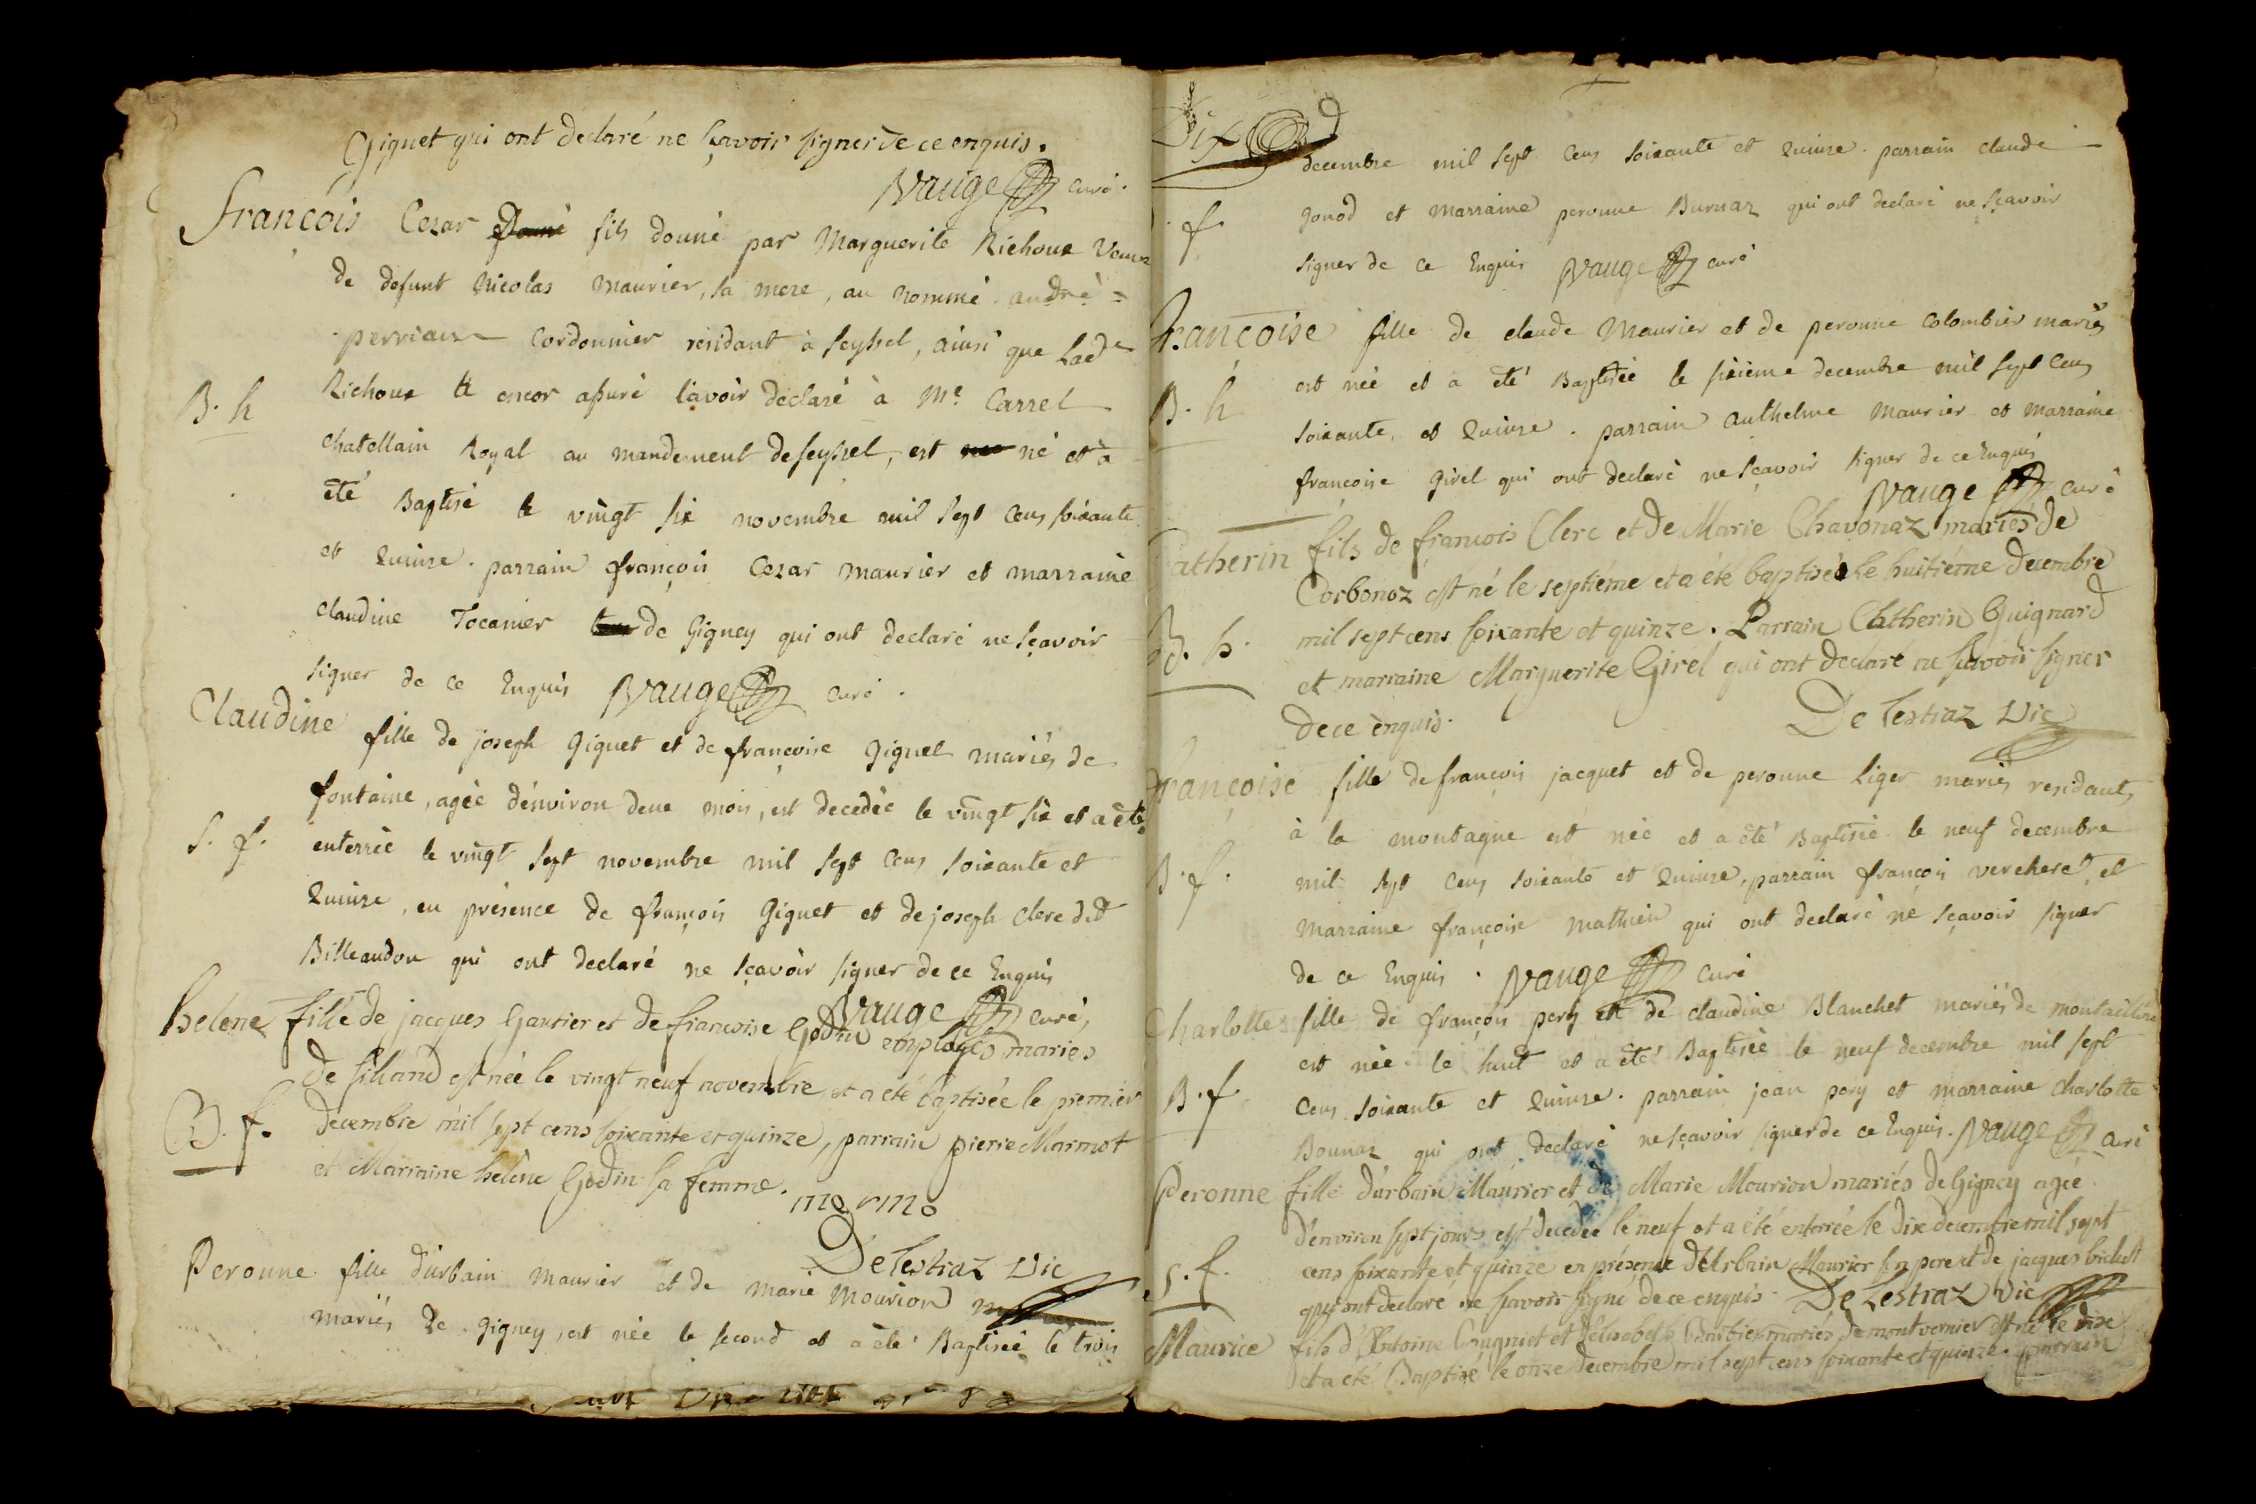 Giguet qui ont declaré ne sçavoir signer de ce enquis.
Vauge curé.
François Cezar fils donné par Marguerite Richoux Veuve
de defunt Nicolas Maurier, sa mere, au nommé andré =
perriaux Cordonnier residant à Seyssel, ainsi que Lad.e
B. h
Richoux a encor assuré l'avoir declaré à M.e Carrel
chatellain Royal au mandement de Seyssel, est né et à
été Baptisé le vingt six novembre mil sept cens soixante
et Quinze. parrain françois Cezar maurier et marraine
claudine Tocanier de Gigney qui ont declaré ne sçavoir
signer de ce Enquis Vauge curé.
Claudine fille de joseph Giguet et de françoise Giguet mariés de
fontaine, agée d'environ deux mois, est decedée le vingt six et a été
S. f.
enterrée le vingt sept novembre mil sept cens soixante et
Quinze, en présence de françois Giguet et de joseph clerc dit
Billeaudon qui ont declaré ne sçavoir signer de ce Enquis
Vauge curé,
helene fille de jacques Gautier et de francoise Godin employés maries
de silland est née le vingt neuf novembre et a été baptisée le premier
B. f.
decembre mil sept cens soixante et quinze, parrain pierre Marmot
et Marraine helène Godin sa femme.
marmo
De Lestraz Vic
Peronne fille d'urbain Maurier et de marie Mourion
mariés de Gigney, est née le second et a été Baptisée le trois
Dix
decembre mil sept cens soixante et Quinze. parrain claude
f.
gonod et marraine peronne Burnaz qui ont declaré ne sçavoir
signer de ce Enquis Vauge curé
françoise fille de claude Maurier et de peronne Colombier mariés
est née et a été Baptisée le sixieme decembre mil sept cens
B. h
soixante, et Quinze. parrain anthelme Maurier et Marraine
françoise Girel qui ont declaré ne sçavoir signer de ce Enquis
Vauge curé
Catherin fils de francois Clerc et de Marie Chavonaz mariés de
Corbonoz est né le septiéme et a été baptisé le huitiéme decembre
B. h.
mil sept cens soixante et quinze. Parrain Chatherin Guignard
et marraine Marguerite Girel qui ont declaré ne savoir signer
de ce enquis. De Lestraz Vic
françoise fille de françois jacquet et de peronne Liger mariés residants
à la montagne est née et a été Baptisée le neuf decembre
B. f.
mil sept cens soixante et Quinze, parrain françois verchere et
marraine françoise Mathieu qui ont declaré ne sçavoir signer
de ce Enquis. Vauge curé
Charlotte fille de françois pery et de claudine Blanchet mariés de
est née le huit et a été Baptisée le neuf decembre mil sept
B. f
cens soixante et Quinze. parrain jean pery et marraine charlotte
Bounaz qui ont declaré ne sçavoir signer de ce Enquis. Vauge curé
Peronne fille d'urbain Maurier et de Marie Mourion mariés de Gigney agée
d'environ sept jours est decedée le neuf et a été enterrée le dix decembre mil sept
S. f.
cens soixante et quinze en présence d'Urbain Maurier son pere et de jacques
qui ont declaré ne savoir signé de ce enquis. De Lestraz Vic
Maurice fils d'Antoine et d'elisabeth Barbier mariés de montvernier est né le dix
et a été Baptisé le onze decembre mil sept cens soixante et quinze. parrain